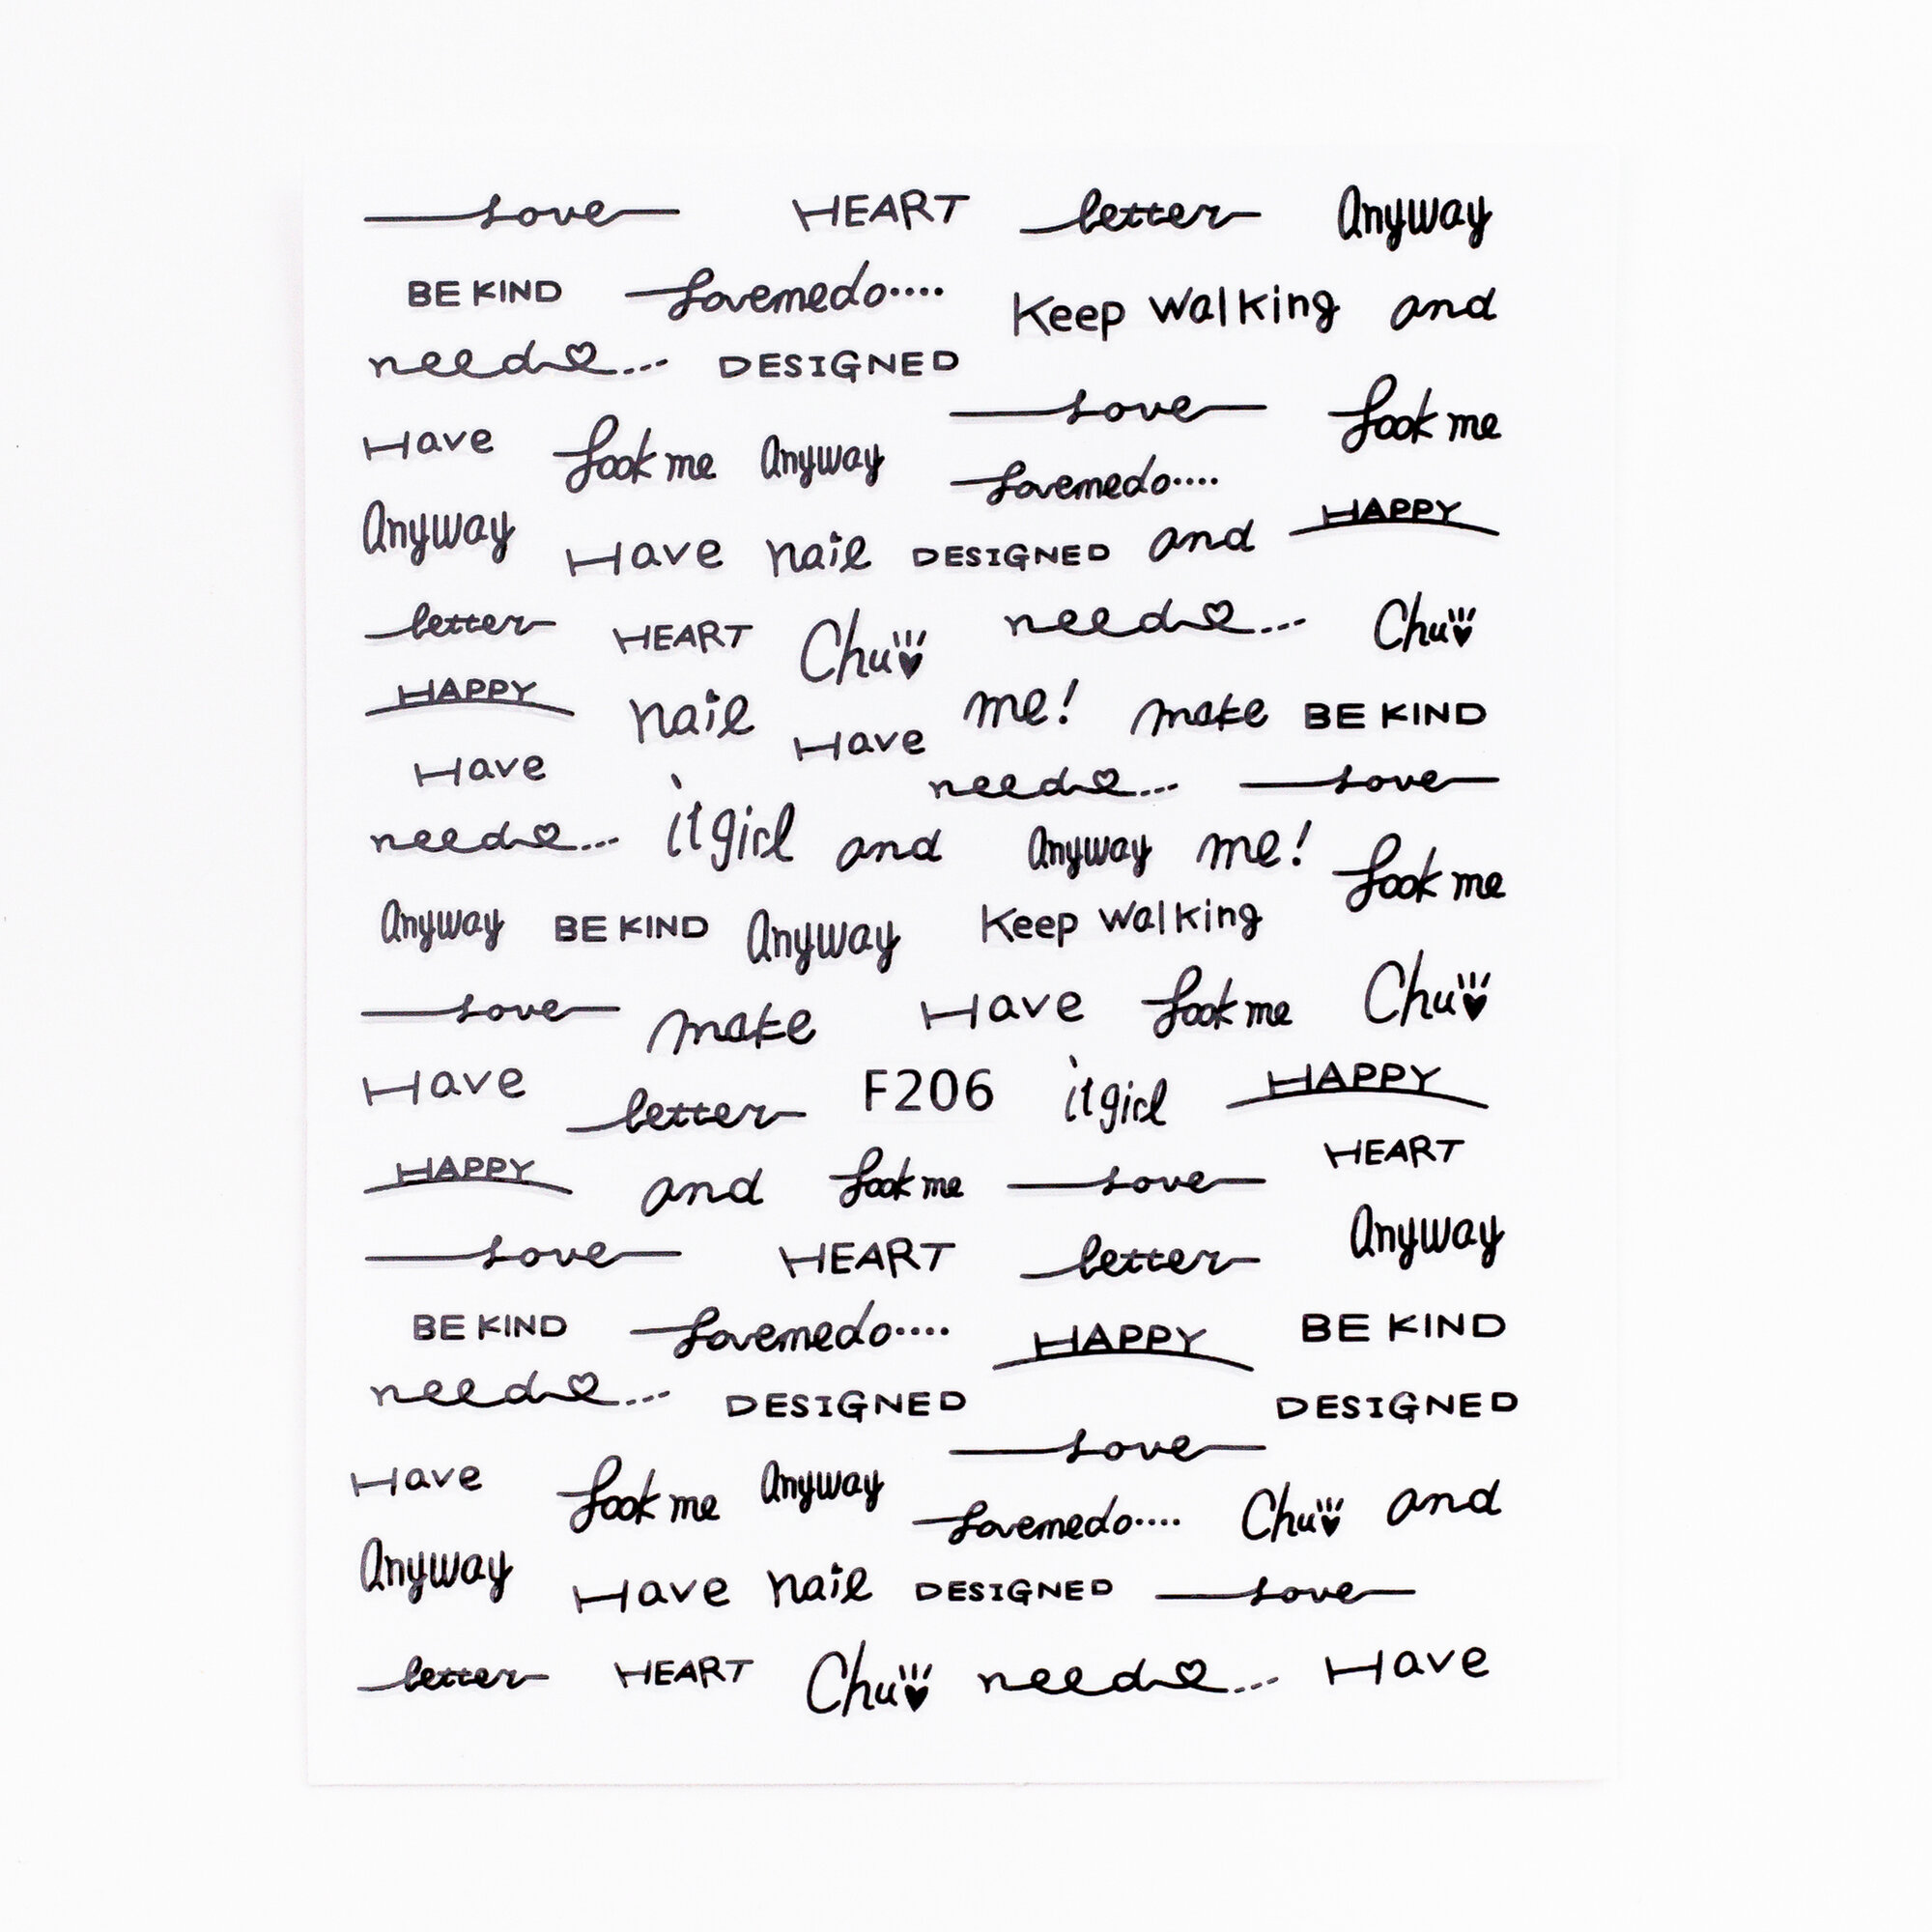 love HEART letter Anyway
BE KIND lovemedo.... Keep walking and
need... DESIGNED
love look me
Have look me Anyway
lovemedo....
Anyway Have nail DESIGNED and HAPPY
letter HEART Chu need... Chu
HAPPY nail me! make BE KIND
Have
Have need... love
need... it girl and Anyway me! look me
Anyway BE KIND Anyway Keep walking
love make Have look me Chu
Have letter F206 it girl HAPPY
HEART
HAPPY and look me love
love HEART letter Anyway
BE KIND lovemedo.... HAPPY BE KIND
need... DESIGNED DESIGNED
love
Have look me Anyway lovemedo.... Chu and
Anyway Have nail DESIGNED love
letter HEART Chu need... Have